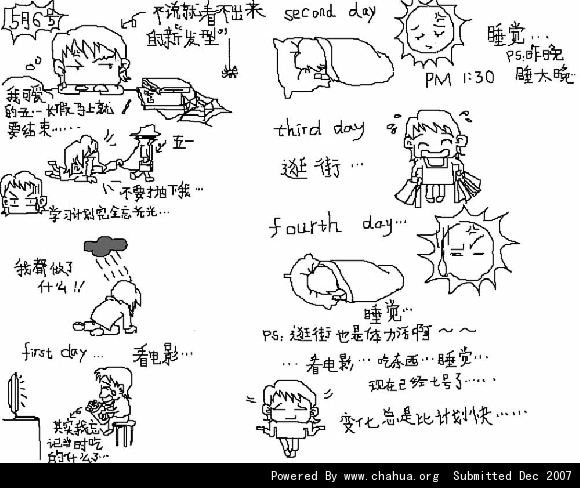 5月6号
不说就看不出来
的新"发型"
我可爱
的五一长假马上就
要结束……
五一
不要抛下我…
学习计划完全忘光光…
我都做了
什么!!
first day…
看电影…
其实我忘
记当时吃
的什么了…
second day
睡觉…
PS:昨晚
睡太晚…
PM 1:30
third day
逛街…
fourth day…
睡觉…
PS:逛街也是体力活啊~~
…看电影…吃东西…睡觉…
现在已经七号了……
变化总是比计划快……
Powered By www.chahua.org Submitted Dec 2007